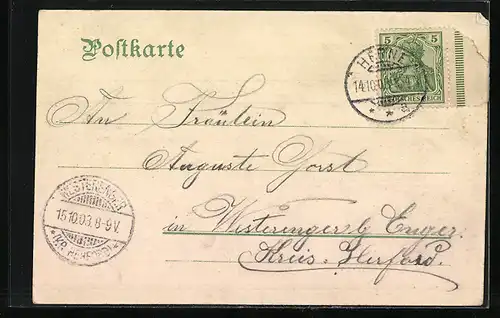 Postkarte
5 5
HERNE
14.10.0
DEUTSCHES REICH
An Fräulein
Auguste Horst
in Westeringer b Enger
Kreis Herford.
WESTERENGER
15.10.03.8-9V.
* (KR. HERFORD) *